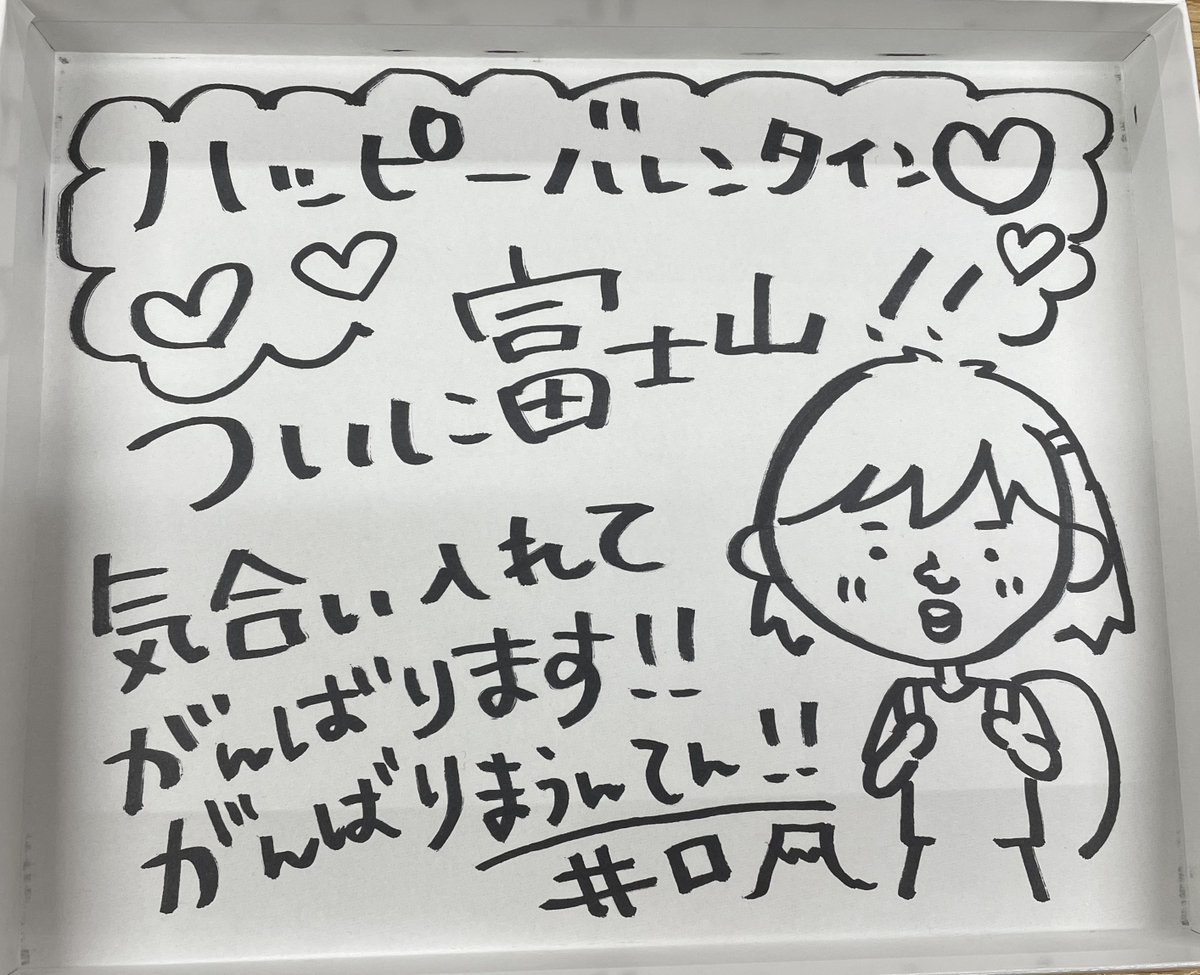 ハッピーバレンタイン♡
ついに富士山!!
気合い入れて
がんばります!!
がんばりまうんてん!!
井口